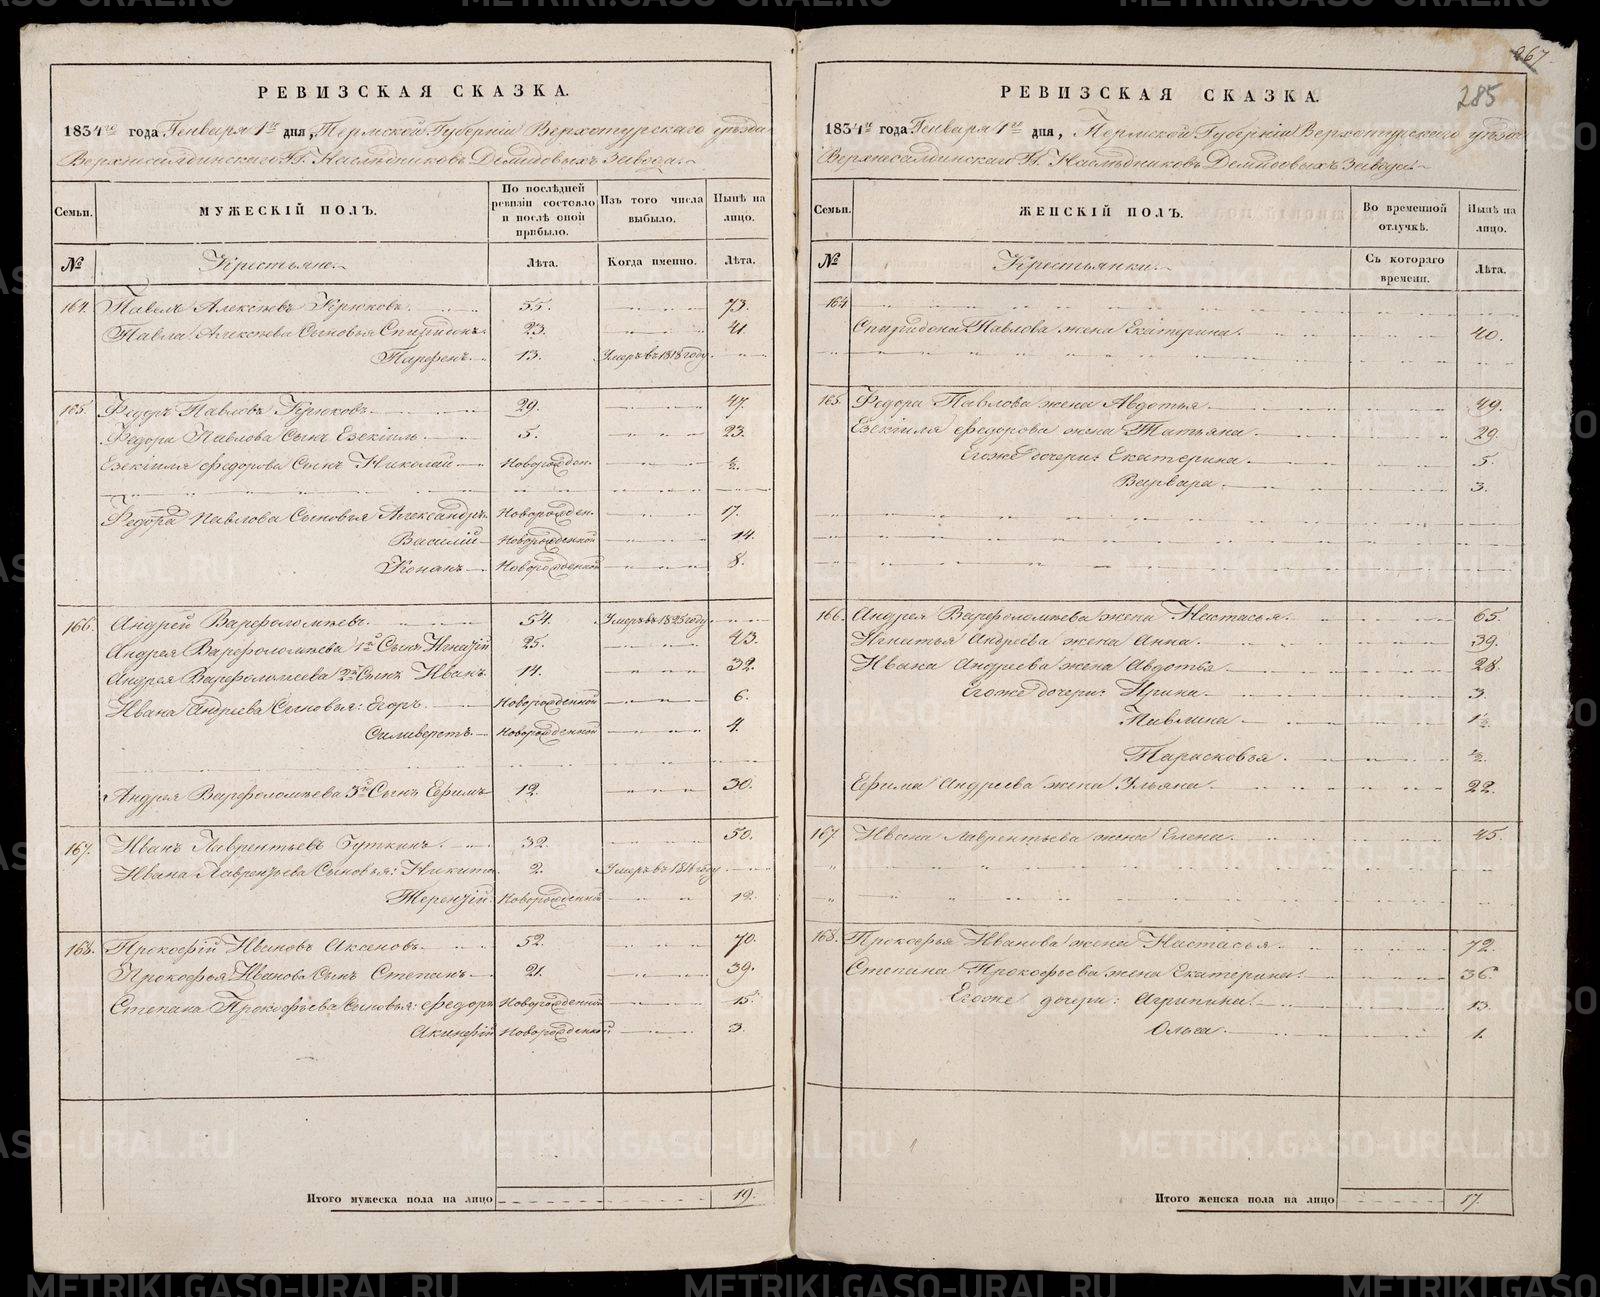 РЕВИЗСКАЯ СКАЗКА.
1834го года Генваря 1го дня, Пермской Губернiи Верхотурскаго уѣзда
Верхнесалдинскаго Гг. Наслѣдниковъ Демидовыхъ Завода.
Семьи.
МУЖЕСКIЙ ПОЛЪ.
По послѣдней ревизiи состояло и послѣ оной прибыло.
Изъ того числа выбыло.
Нынѣ на лицо.
№
Крестьяне.
Лѣта.
Когда именно.
Лѣта.
164. Павелъ Алексѣевъ Крюковъ. 55. 73.
Павла Алексѣева Сыновья Спиридонъ. 23. 41
Парфенъ. 13. Умеръ въ 1818 году.
165. Федоръ Павловъ Крюковъ 29. 47.
Федора Павлова Сынъ Езекiиль. 5. 23.
Езекiиля Федорова Сынъ Николай Новорожден. ½.
Федора Павлова Сыновья Александръ. Новорожден. 17.
Василiй Новорожденной 14.
Кононъ. Новорожденной 8.
166. Андрей Варфоломѣевъ. 54. Умеръ въ 1825 году.
Андрея Варфоломѣева 1й Сынъ Игнатiй 25. 43.
Андрея Варфоломѣева 2й Сынъ Иванъ 14. 32.
Ивана Андреева Сыновья: Егоръ. Новорожденной 6.
Силиверстъ. Новорожденной 4.
Андрея Варфоломѣева 3й Сынъ Ефимъ 12. 30.
167. Иванъ Лаврентьевъ Гуткинъ. 32. 50.
Ивана Лаврентьева Сыновья: Никита. 2. Умеръ въ 1816 году
Терентiй. Новорожденной 12.
168. Прокофiй Ивановъ Аксеновъ. 52. 70.
Прокофья Иванова Сынъ Степанъ. 21. 39.
Степана Прокофьева Сыновья: Федоръ Новорожденной 15
Акинфiй Новорожденной 3.
Итого мужеска пола на лицо 19.
267.
285
РЕВИЗСКАЯ СКАЗКА.
1834го года Генваря 1го дня, Пермской Губернiи Верхотурскаго уѣзда
Верхнесалдинскаго Гг. Наслѣдниковъ Демидовыхъ Завода.
Семьи.
ЖЕНСКIЙ ПОЛЪ.
Во временной отлучкѣ.
Нынѣ на лицо.
№
Крестьянки.
Съ котораго времени.
Лѣта.
164
Спиридона Павлова жена Екатерина. 40.
165. Федора Павлова жена Авдотья. 49.
Езекiиля Федорова жена Татьяна. 29.
Егоже дочери: Екатерина. 5.
Варвара. 3.
166. Андрея Варфоломѣева жена Настасья. 65.
Игнатья Андреева жена Анна. 39.
Ивана Андреева жена Авдотья 28.
Егоже дочери: Ирина. 3.
Павлина 1½.
Парасковья. ½.
Ефима Андреева жена Ульяна. 22.
167. Ивана Лаврентьева жена Елена. 45.
168. Прокофья Иванова жена Настасья. 72.
Степана Прокофьева жена Екатерина. 36.
Егоже дочери: Агрипина. 13.
Ольга. 1.
Итого женска пола на лицо 17.
METRIKI.GASO-URAL.RU